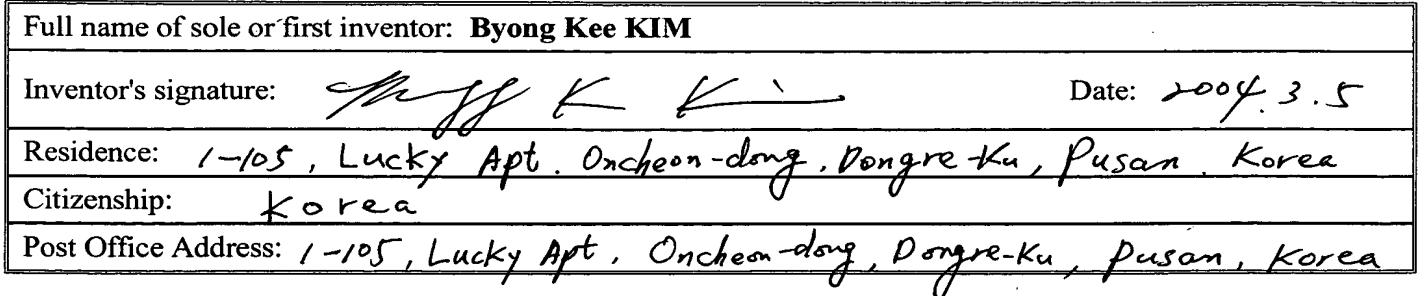 Full name of sole or first inventor: Byong Kee KIM
Inventor's signature: K Date: 2004.3.5
Residence: 1-105, Lucky Apt. Oncheon-dong, Dongre-Ku, Pusan. Korea
Citizenship: Korea
Post Office Address: 1-105, Lucky Apt, Oncheon-dong, Dongre-Ku, Pusan, Korea